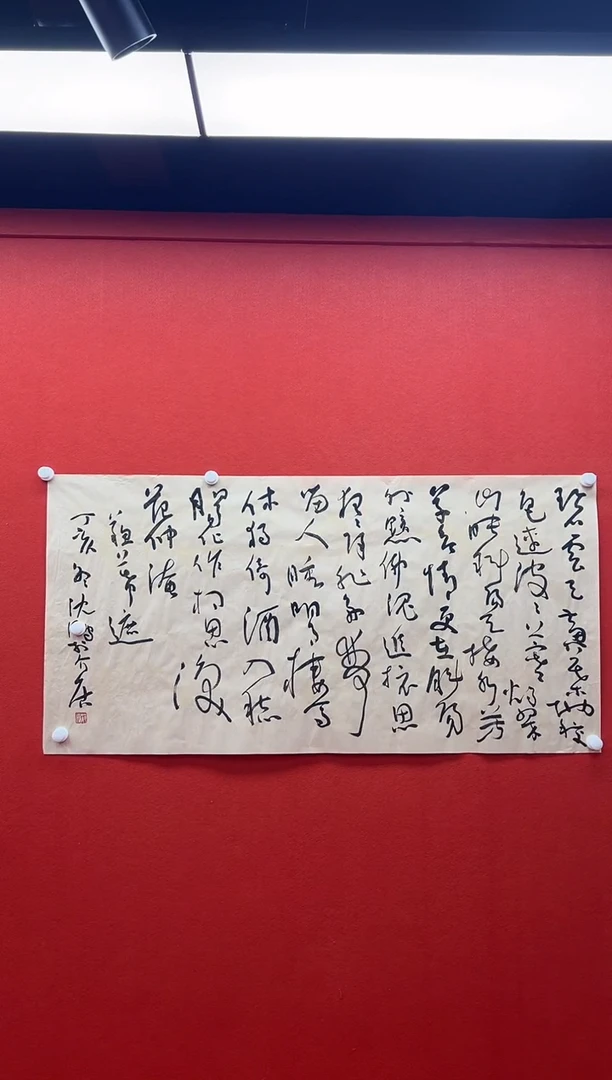 碧云天黄葉地秋
色連波〻上寒烟翠
山映斜陽天接水芳
草無情更在斜陽
外黯鄉魂追旅思
夜〻除非好夢
留人睡明月樓高
休獨倚酒入愁
腸化作相思淚
范仲淹
蘇幕遮
丁亥冬沈鵬於介居